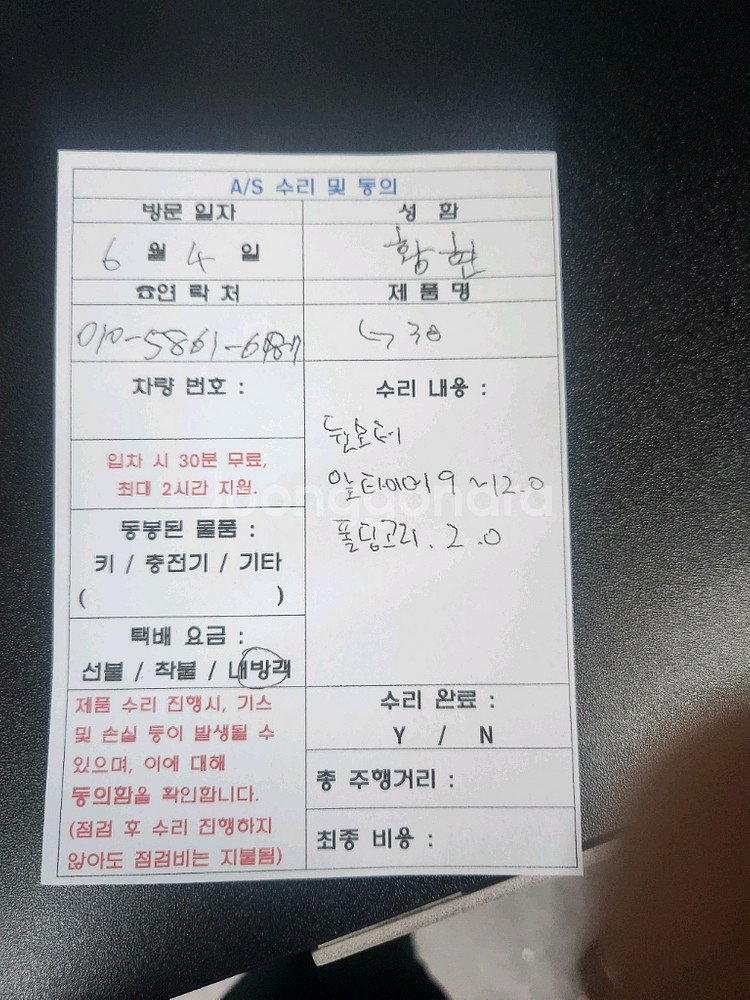 A/S 수리 및 동의
방문 일자
성 함
6 월 4 일
황현
☎연 락 처
제 품 명
30
차량 번호 :
수리 내용 :
뒷모터
입차 시 30분 무료,
최대 2시간 지원.
알타이어 9 ~12.0
Joonggonara
동봉된 물품 :
폴딩고리. 2.0
키 / 충전기 / 기타
( )
택배 요금 :
선불 / 착불 / 내방객
제품 수리 진행시, 기스
및 손실 등이 발생될 수
있으며, 이에 대해
동의함을 확인합니다.
(점검 후 수리 진행하지
않아도 점검비는 지불됨)
수리 완료 :
Y / N
총 주행거리 :
최종 비용 :